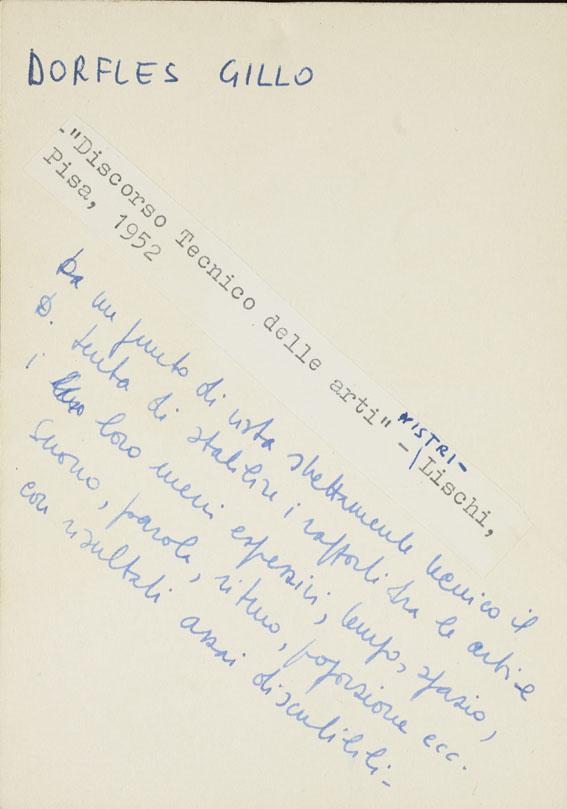 DORFLES GILLO
-"Discorso Tecnico delle arti" - NISTRI-Lischi,
Pisa, 1952
Da un punto di vista strettamente tecnico il
D. tenta di stabilire i rapporti tra le arti e
i loro mezzi espressivi, tempo, spazio,
suono, parola, ritmo, proporzione ecc.
con risultati assai discutibili-